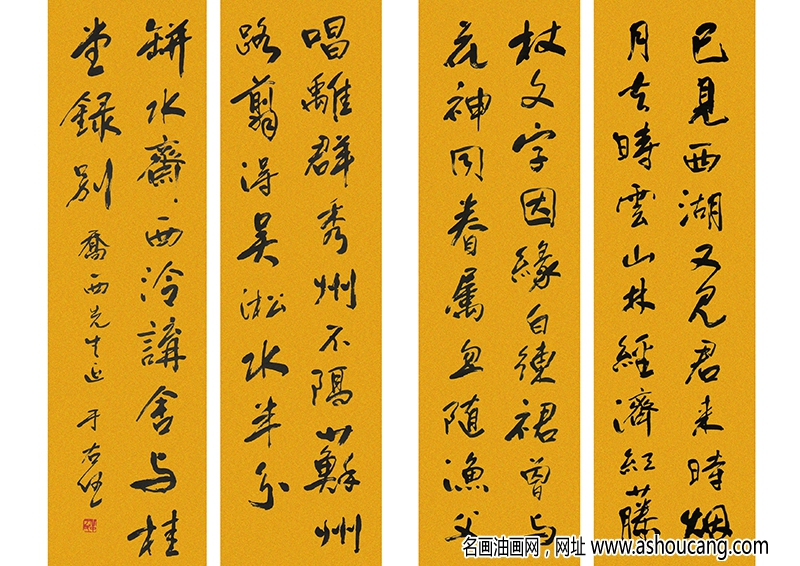 已見西湖又見君来時烟
月去時雲山林經濟紅藤
杖文字因緣白練裙曾与
花神同眷屬忽随漁父
唱離群秀州不隔蘇州
路翦得吴淞水半分
缾水齋西泠講舍与桂
堂録别
喬西先生正 于右任
名画油画网，网址 www.ashoucang.com